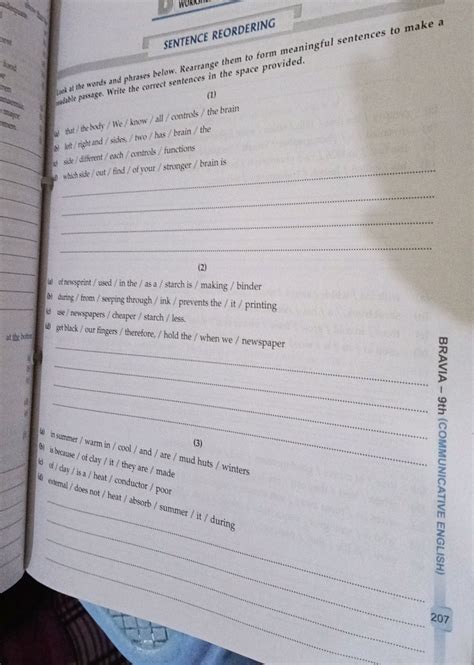 SENTENCE REORDERING
Look at the words and phrases below. Rearrange them to form meaningful sentences to make a
readable passage. Write the correct sentences in the space provided.
(1)
(a) that / the body / We / know / all / controls / the brain
(b) left / right and / sides, / two / has / brain / the
(c) side / different / each / controls / functions
(d) which side / out / find / of your / stronger / brain is
(2)
(a) of newsprint / used / in the / as a / starch is / making / binder
(b) during / from / seeping through / ink / prevents the / it / printing
(c) use / newspapers / cheaper / starch / less.
(d) get black / our fingers / therefore, / hold the / when we / newspaper
at the bottom
(3)
(a) in summer / warm in / cool / and / are / mud huts / winters
(b) is because / of clay / it / they are / made
(c) of / clay / is a / heat / conductor / poor
(d) external / does not / heat / absorb / summer / it / during
BRAVIA – 9th (COMMUNICATIVE ENGLISH)
207